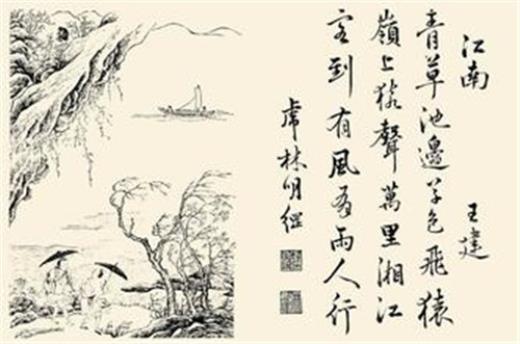 江南
王建
青草池邊草色飛猿
嶺上猿聲萬里湘江
客到有風有雨人行
虎林明綱